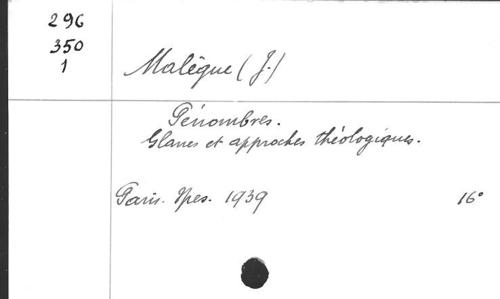 296
350
1
Malègue (J.)
Pénombres.
Glanes et approches théologiques.
Paris. Spes. 1939 16°